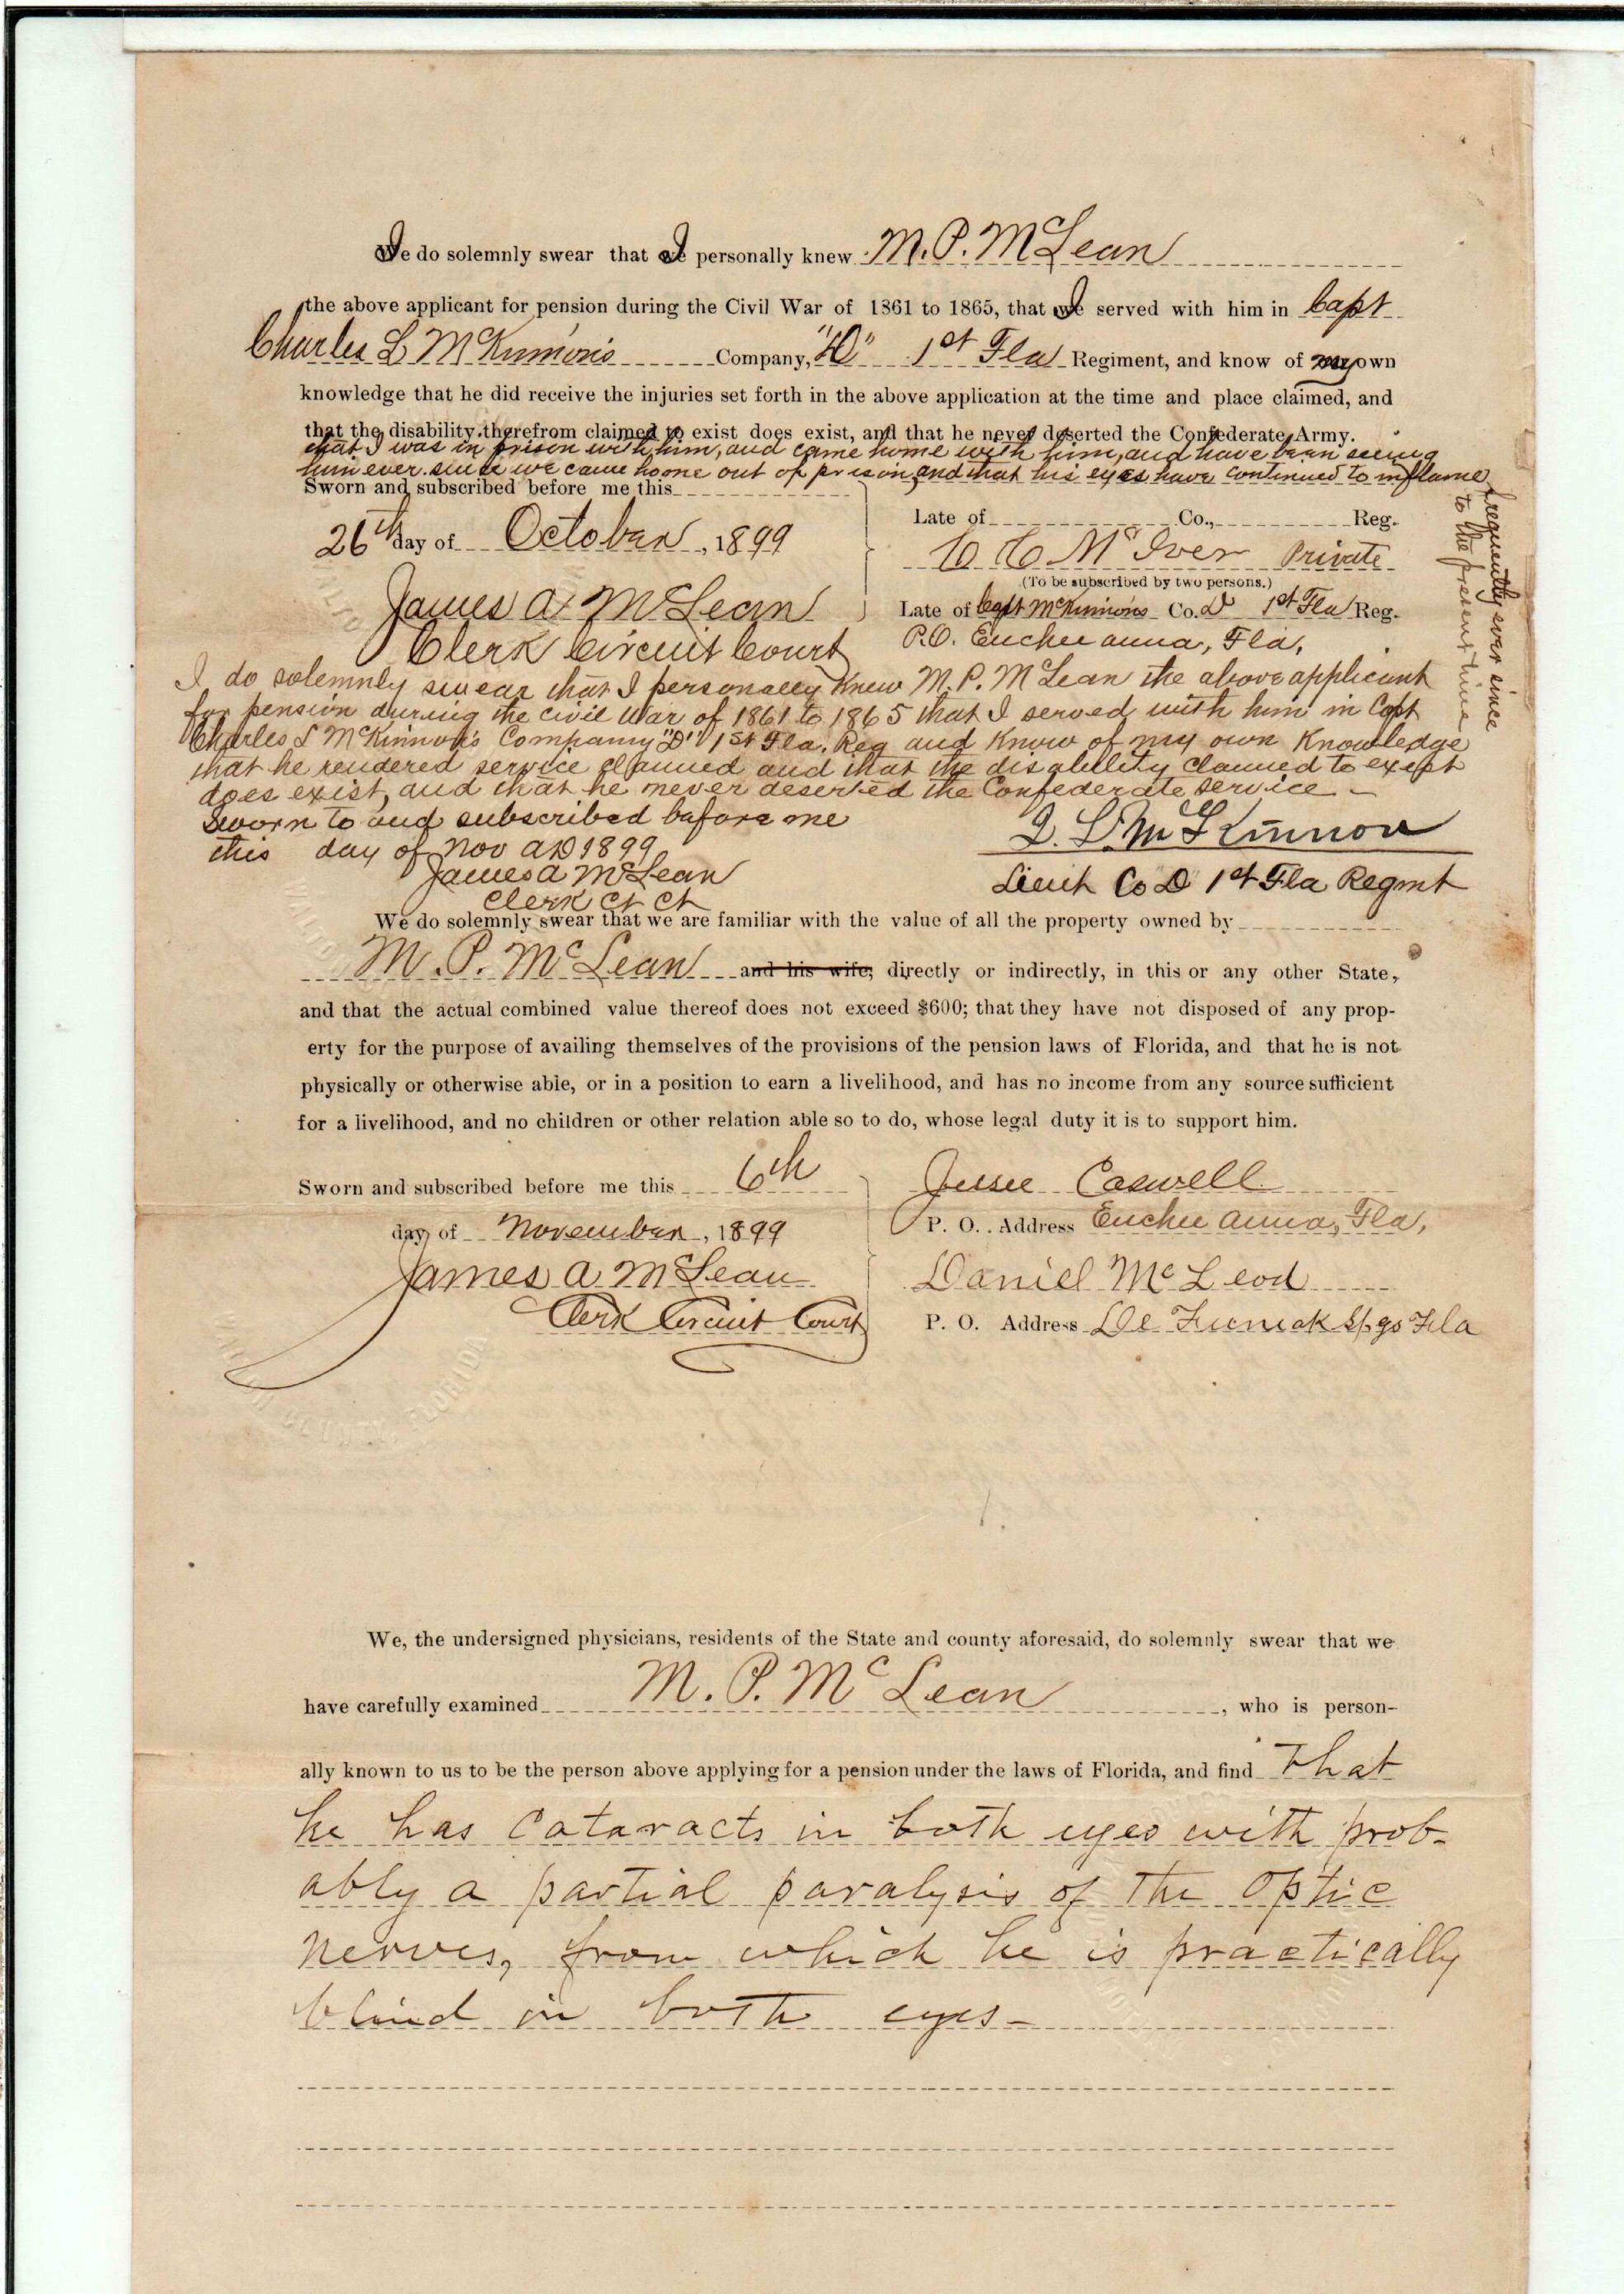 I do solemnly swear that I personally knew M. P. McLean
the above applicant for pension during the Civil War of 1861 to 1865, that I served with him in Capt
Charles L McKinnon's Company, "D" 1st Fla Regiment, and know of my own
knowledge that he did receive the injuries set forth in the above application at the time and place claimed, and
that the disability therefrom claimed to exist does exist, and that he never deserted the Confederate Army.
that I was in prison with him, and came home with him, and have been seeing
him ever since we came home out of prison, and that his eyes have continued to inflame
frequently ever since
to the present time
Sworn and subscribed before me this
26th day of October, 1899
James A McLean
Clerk Circuit Court
Late of Co., Reg.
McIver Private
(To be subscribed by two persons.)
Late of Capt McKinnon's Co. D 1st Fla Reg.
P.O. Euchee anna, Fla,
I do solemnly swear that I personally knew M. P. McLean the above applicant
for pension during the civil war of 1861 to 1865 that I served with him in Capt
Charles L McKinnon's Company "D" 1st Fla. Reg and know of my own Knowledge
that he rendered service claimed and that the disability claimed to exept
does exist, and that he never deserted the Confederate service -
Sworn to and subscribed before me
this day of Nov AD 1899
James A McLean
Clerk Ct Ct
L. McKinnon
Lieut Co D 1st Fla Regmt
We do solemnly swear that we are familiar with the value of all the property owned by
M. P. McLean and his wife, directly or indirectly, in this or any other State,
and that the actual combined value thereof does not exceed $600; that they have not disposed of any prop-
erty for the purpose of availing themselves of the provisions of the pension laws of Florida, and that he is not
physically or otherwise able, or in a position to earn a livelihood, and has no income from any source sufficient
for a livelihood, and no children or other relation able so to do, whose legal duty it is to support him.
Sworn and subscribed before me this 6th
day of November, 1899
James A McLean
Clerk Circuit Court
Jesse Caswell
P. O. Address Euchee anna, Fla,
Daniel McLeod
P. O. Address De Funiak Spgs Fla
We, the undersigned physicians, residents of the State and county aforesaid, do solemnly swear that we
have carefully examined M. P. McLean, who is person-
ally known to us to be the person above applying for a pension under the laws of Florida, and find that
he has Cataracts in both eyes with prob-
ably a partial paralysis of the Optic
nerves, from which he is practically
blind in both eyes-